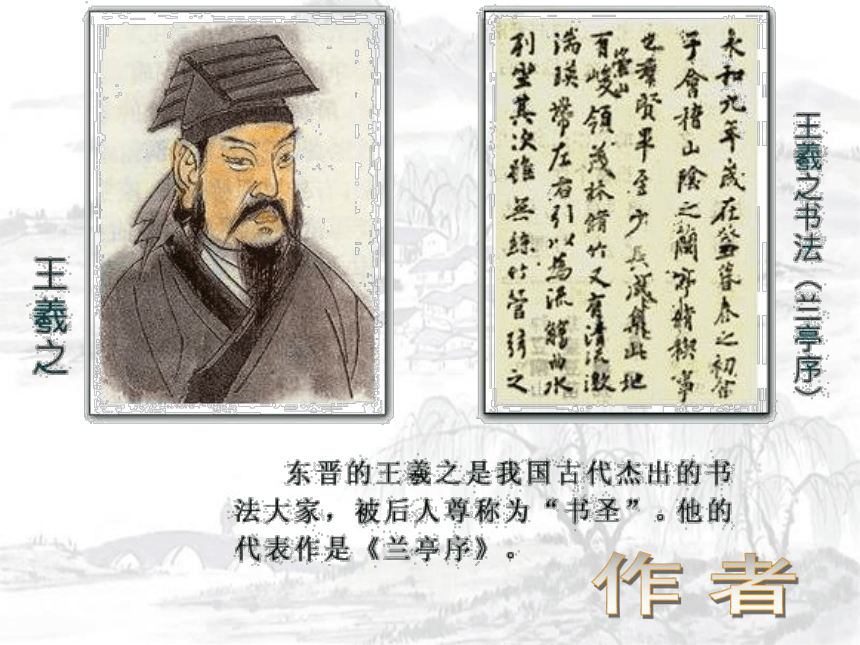 王羲之
永和九年歲在癸丑暮春之初會
于會稽山陰之蘭亭脩稧事
也羣賢畢至少長咸集此地
有崇山峻領茂林脩竹又有清流激
湍暎帶左右引以為流觴曲水
列坐其次雖無絲竹管弦之
王羲之书法（兰亭序）
东晋的王羲之是我国古代杰出的书
法大家，被后人尊称为“书圣”。他的
代表作是《兰亭序》。
作者